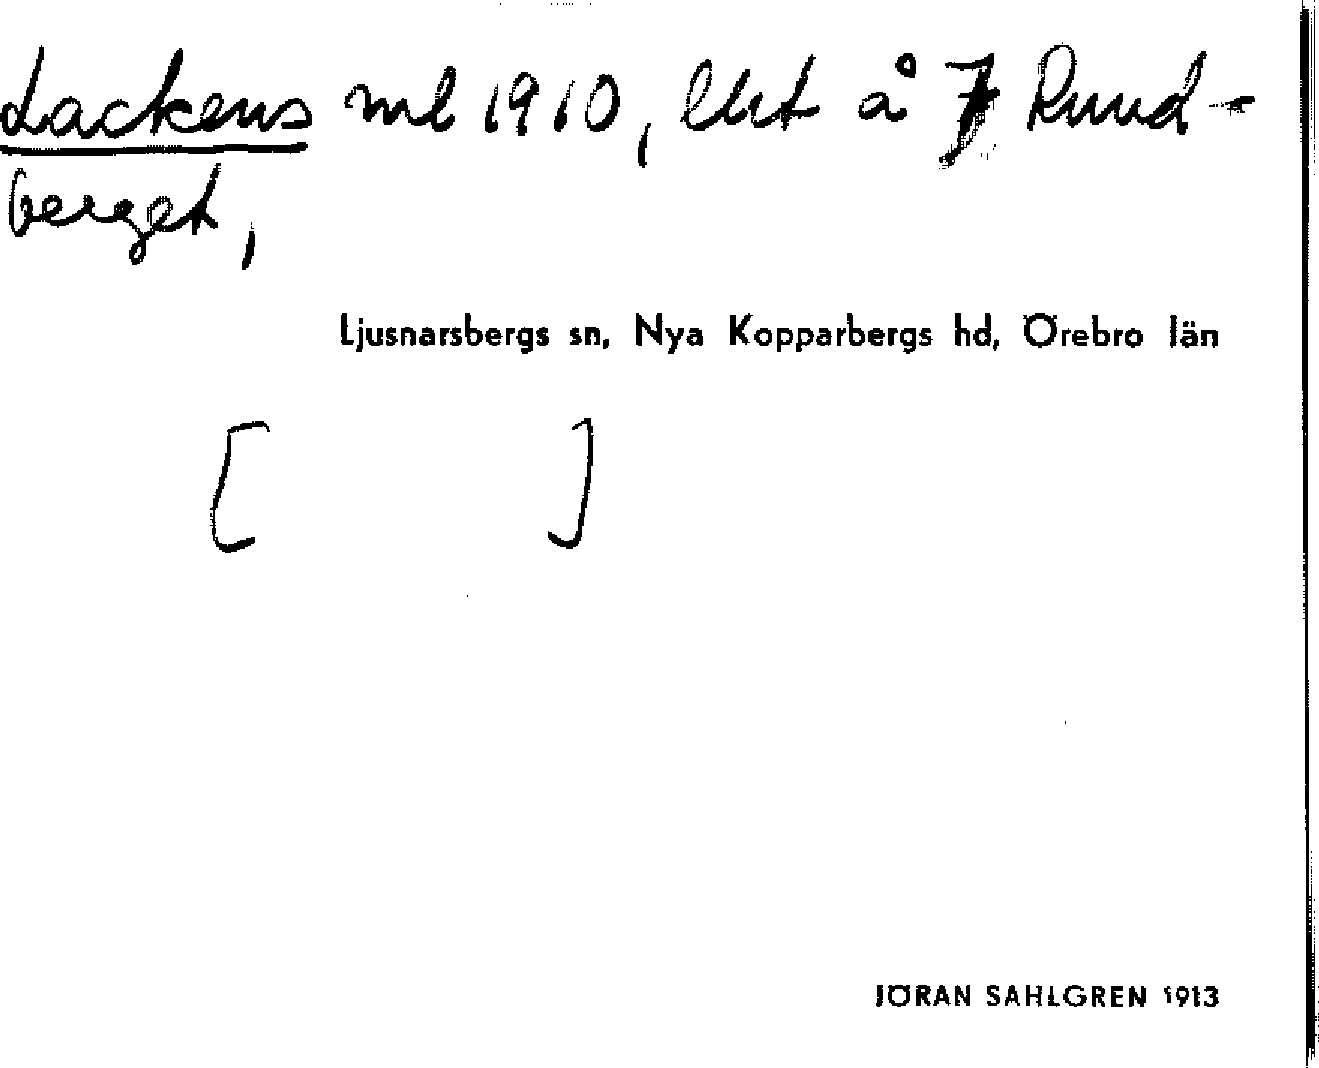 Lackens ml 1910, lht å J Rund-
berget,
Ljusnarsbergs sn, Nya Kopparbergs hd, Örebro län
[ ]
JÖRAN SAHLGREN 1913